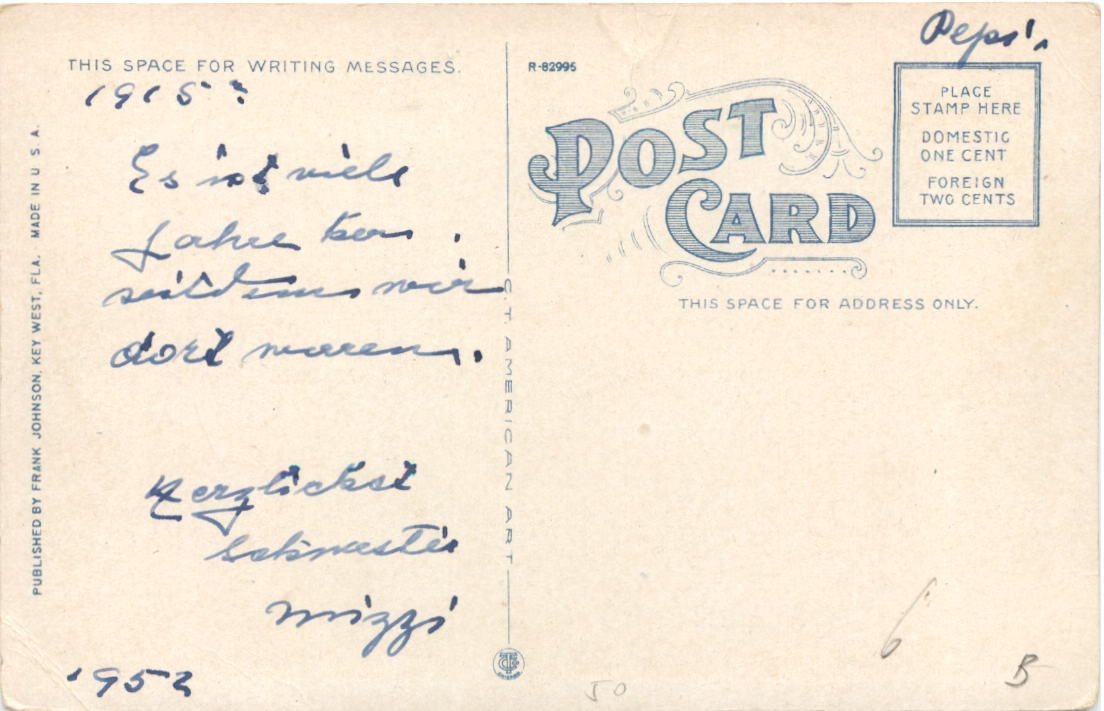 THIS SPACE FOR WRITING MESSAGES.
1915?
Es ist viele
Jahre her.
seitdem wir
dort waren.
Herzlichst
Schwester
Mizzi
1952
PUBLISHED BY FRANK JOHNSON, KEY WEST, FLA. MADE IN U S A.
C. T. AMERICAN ART
R-82995
POST
CARD
THIS SPACE FOR ADDRESS ONLY.
PLACE
STAMP HERE
DOMESTIC
ONE CENT
FOREIGN
TWO CENTS
6
B
50